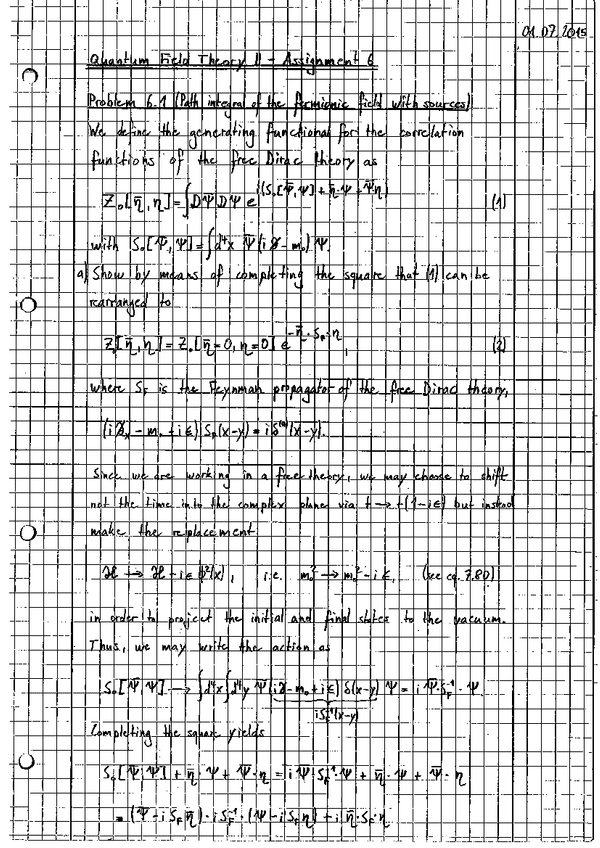 01.07.2015
Quantum Field Theory II - Assignment 6
Problem 6.1 (Path integral of the fermionic field with sources)
We define the generating functional for the correlation
functions of the free Dirac theory as
Z₀[η̄,η] = ∫DΨ̄DΨ e^{i(S₀[Ψ̄,Ψ] + η̄·Ψ + Ψ̄·η)} (1)
with S₀[Ψ̄,Ψ] = ∫d⁴x Ψ̄(i∂̸ - m₀)Ψ.
a) Show by means of completing the square that (1) can be
rearranged to
Z₀[η̄,η] = Z₀[η̄=0, η=0] e^{-η̄·S_F·η}, (2)
where S_F is the Feynman propagator of the free Dirac theory,
(i∂̸ₓ - m₀ + iε) S_F(x-y) = iδ⁽⁴⁾(x-y).
Since we are working in a free theory, we may choose to shift
not the time into the complex plane via t → t(1-iε) but instead
make the replacement
ℋ → ℋ - iε ϕ²(x), i.e. m₀² → m₀² - iε, (see eq. 7.80)
in order to project the initial and final states to the vacuum.
Thus, we may write the action as
S₀[Ψ̄,Ψ] → ∫d⁴x ∫d⁴y Ψ̄ (i∂̸ - m₀ + iε) δ(x-y) Ψ = i Ψ̄·S_F⁻¹·Ψ
iS_F⁻¹(x-y)
Completing the square yields
S₀[Ψ̄,Ψ] + η̄·Ψ + Ψ̄·η = i Ψ̄·S_F⁻¹·Ψ + η̄·Ψ + Ψ̄·η
= (Ψ̄ - i S_F η̄)·i S_F⁻¹·(Ψ - i S_F η) + i η̄·S_F·η